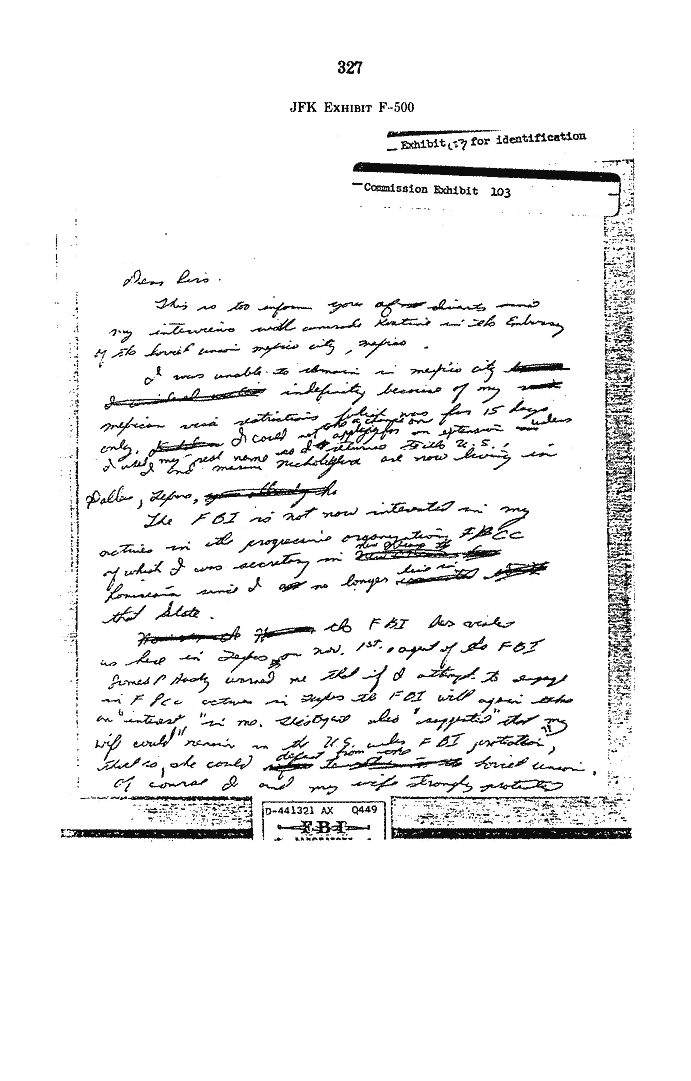 327
JFK EXHIBIT F-500
Exhibit for identification
Commission Exhibit 103
Dear Sirs.
This is too inform you of
my interviews with comrade Kostine in the Embassy
of the Soviet union mexico city, mexico.
I was unable to remain in mexico city
indefinity because of my
mexican visa restrictions which was for 15 days
only. I could not applying for an extension unless
I used my real name so I returned to the U.S.,
I and marina Nicholeyeva are now living in
Dallas, Texas,
The FBI is not now interested in my
activies in the progressive organization FPCC
of which I was secretary in New Orleans
Louisiana since I no longer live in
that State.
the FBI has visited
us here in Texas on Nov. 1st. agent of the FBI
James P Hasty warned me that if I attempt to engage
in FPCC activies in Texas the FBI will again take
an "interest" in me. also "suggested" that my
wife could "remain in the U.S. under FBI protection",
that is, she could defect from the Soviet union.
Of course I and my wife strongly protested
D-441321 AX Q449
FBI
LABORATORY